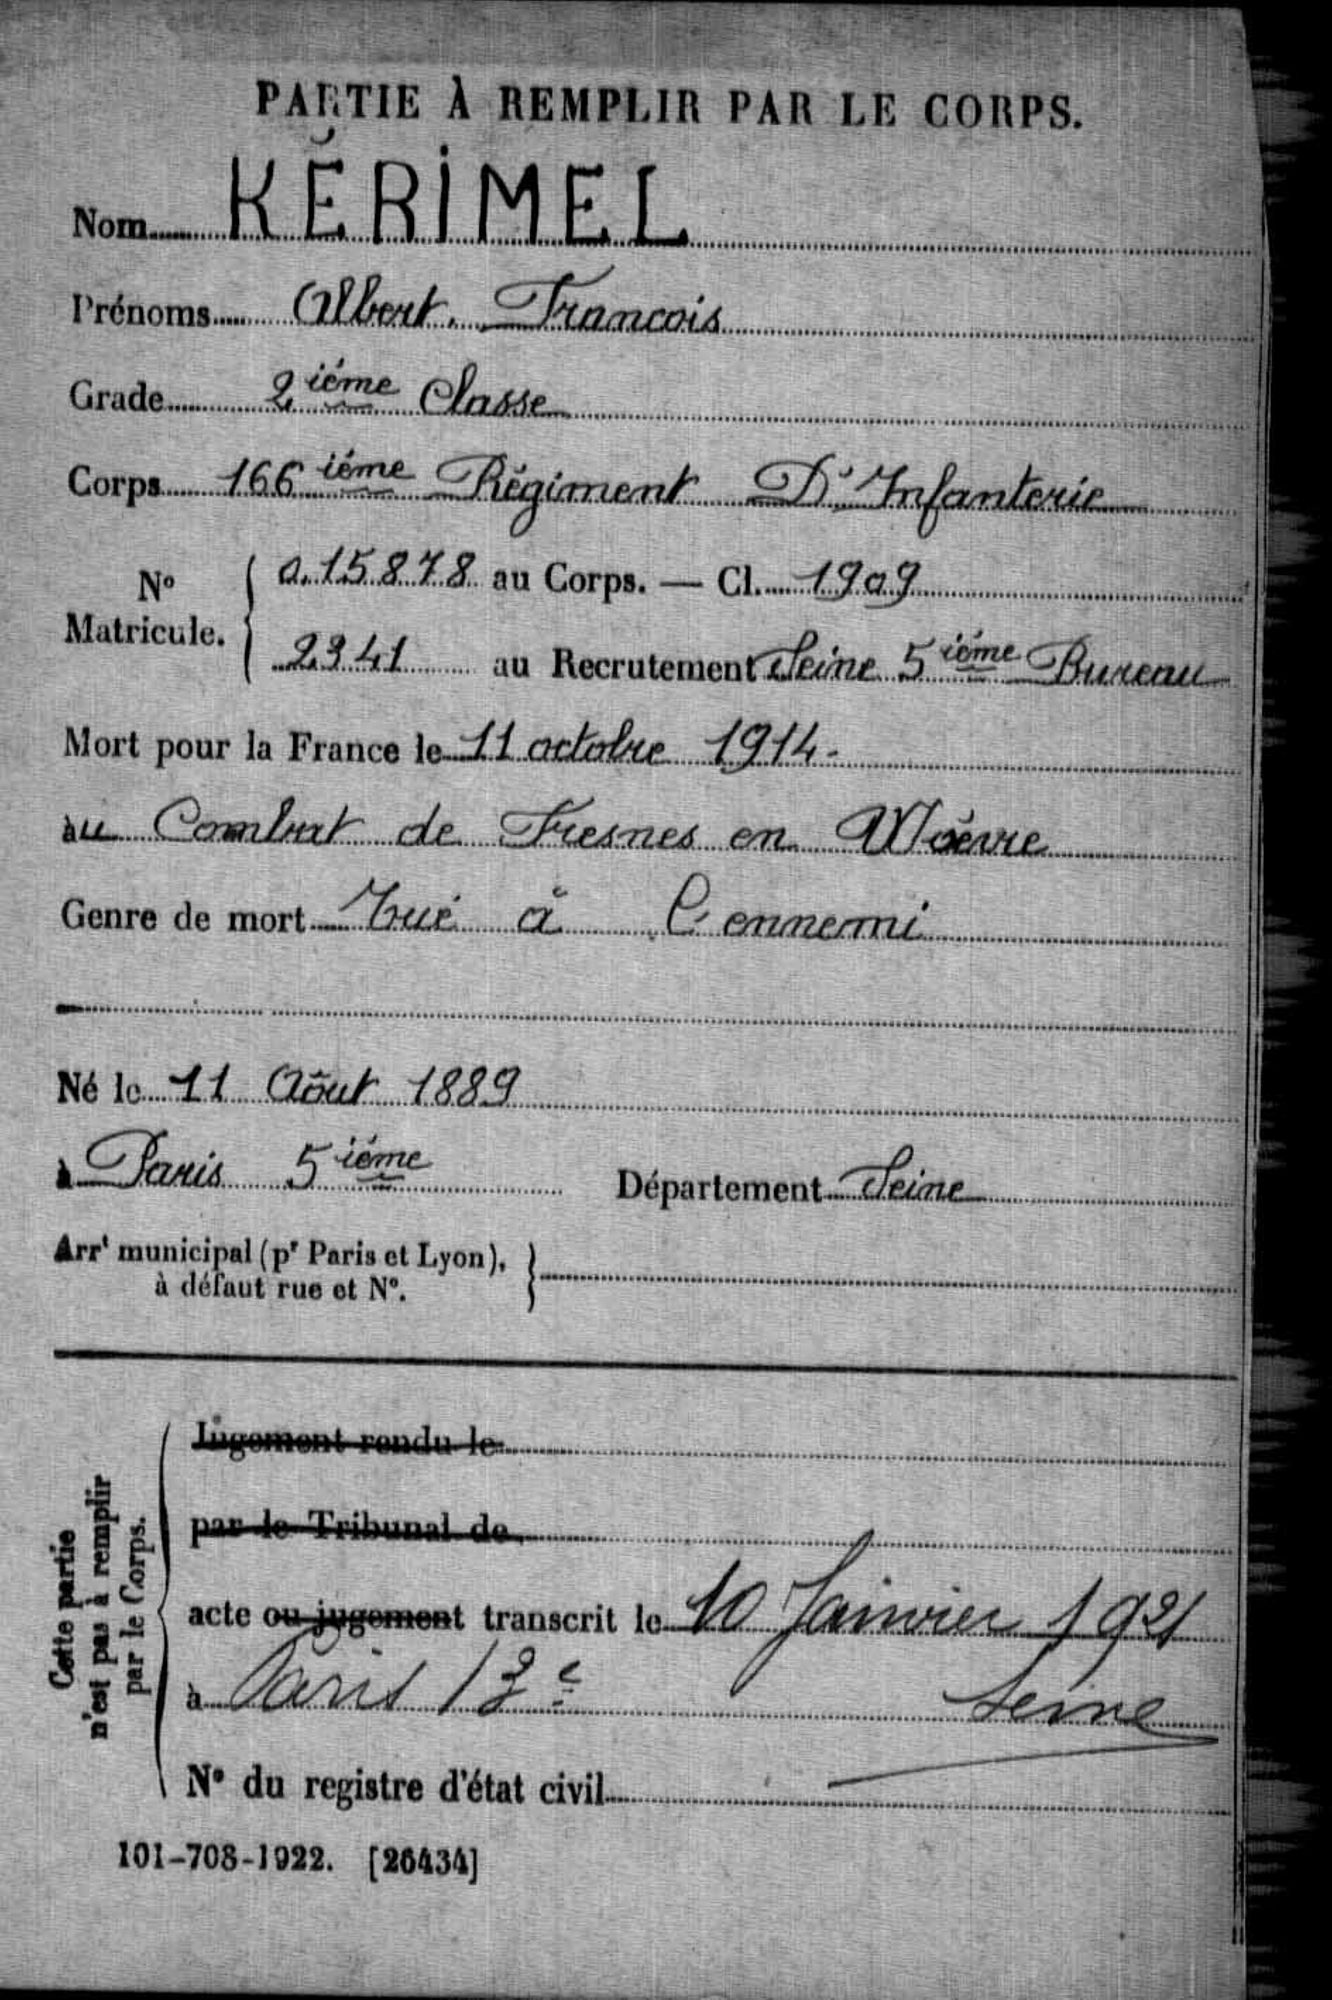 PARTIE À REMPLIR PAR LE CORPS.
Nom KÉRIMEL
Prénoms Albert. François
Grade 2ième Classe
Corps 166 ième Régiment D'Infanterie
No Matricule. 0.15878 au Corps. — Cl. 1909
2341 au Recrutement Seine 5ième Bureau
Mort pour la France le 11 octobre 1914.
au Combat de Fresnes en Woëvre
Genre de mort Tué à l'ennemi
Né le 11 Août 1889
à Paris 5ième Département Seine
Arrt municipal (pr Paris et Lyon),
à défaut rue et No.
Cette partie
n'est pas à remplir
par le Corps.
Jugement rendu le
par le Tribunal de
acte ou jugement transcrit le 10 Janvier 1921
à Paris 13e Seine
No du registre d'état civil
101-708-1922. [26434]